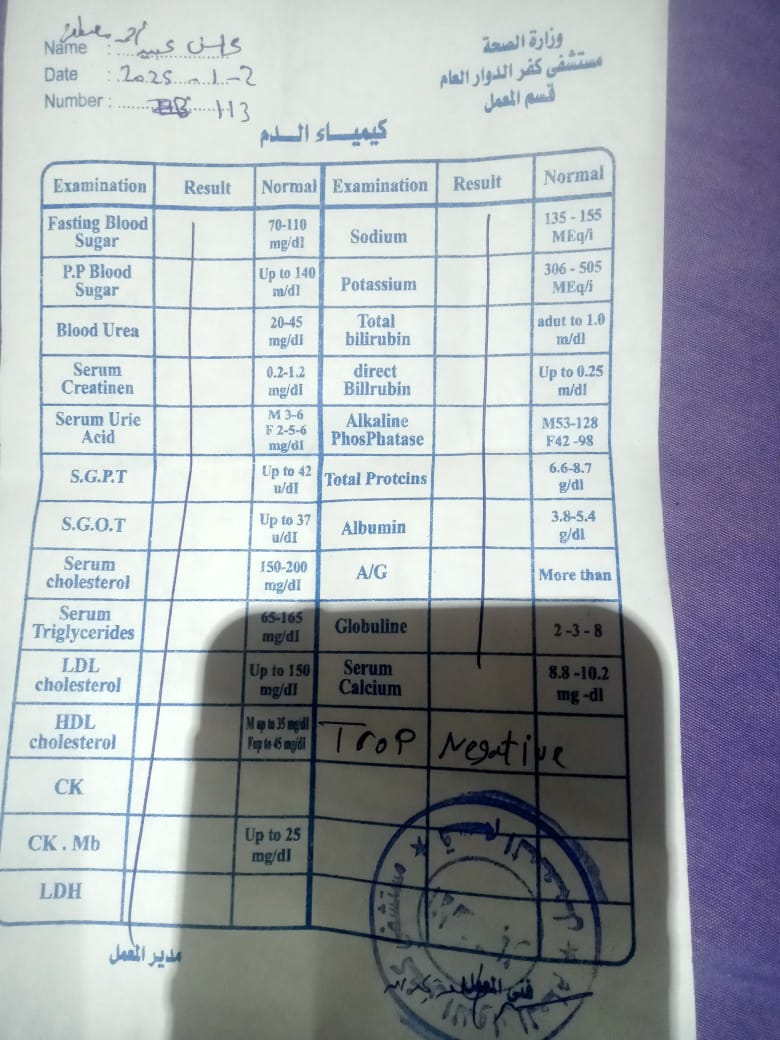 وزارة الصحة
مستشفى كفر الدوار العام
قسم المعمل
Name :
Date : 2025-1-2
Number : 113
كيمياء الدم
Examination Result Normal Examination Result Normal
Fasting Blood Sugar 70-110 mg/dl Sodium 135 - 155 MEq/i
P.P Blood Sugar Up to 140 m/dl Potassium 306 - 505 MEq/i
Blood Urea 20-45 mg/dl Total bilirubin adut to 1.0 m/dl
Serum Creatinen 0.2-1.2 mg/dl direct Billrubin Up to 0.25 m/dl
Serum Urie Acid M 3-6 F 2-5-6 mg/dl Alkaline PhosPhatase M53-128 F42 -98
S.G.P.T Up to 42 u/dl Total Protcins 6.6-8.7 g/dl
S.G.O.T Up to 37 u/dl Albumin 3.8-5.4 g/dl
Serum cholesterol 150-200 mg/dl A/G More than
Serum Triglycerides 65-165 mg/dl Globuline 2 -3 - 8
LDL cholesterol Up to 150 mg/dl Serum Calcium 8.8 -10.2 mg -dl
HDL cholesterol M up to 35 mg/dl F up to 45 mg/dl Trop Negative
CK
CK . Mb Up to 25 mg/dl
LDH
مدير المعمل
فنى المعمل